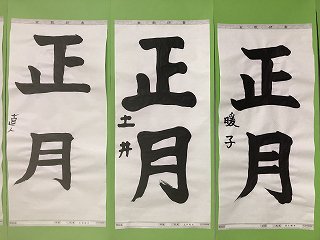 正月
直人
正月
土井
正月
暖子